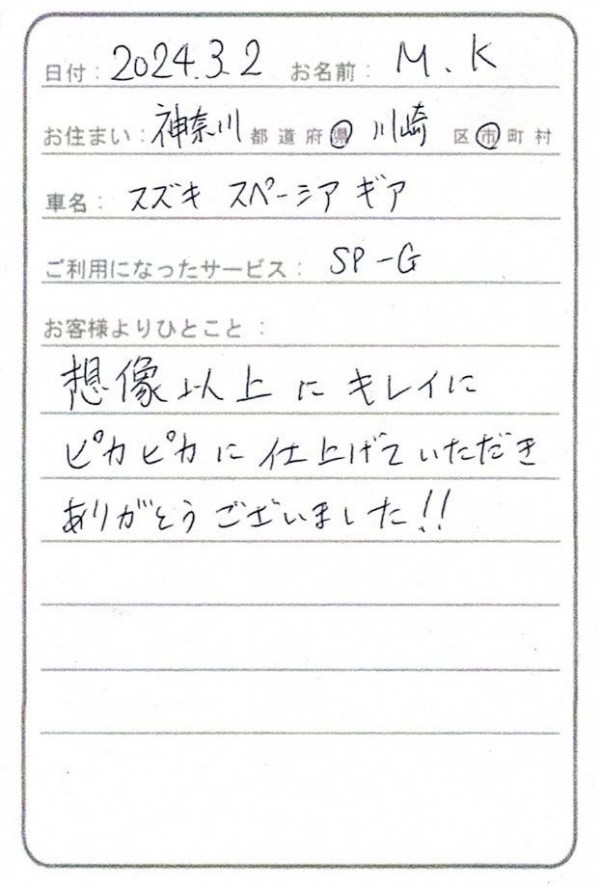 日付：2024.3.2 お名前：M.K
お住まい：神奈川 都道府県 川崎 区市町村
車名：スズキ スペーシア ギア
ご利用になったサービス：SP-G
お客様よりひとこと：
想像以上にキレイに
ピカピカに仕上げていただき
ありがとうございました!!